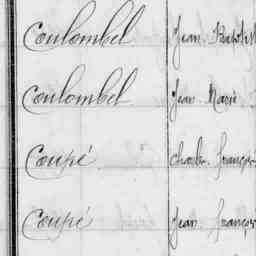 Coulombel Jean Baptist
Coulombel Jean Marie
Coupé Charles françois
Coupé Jean françois